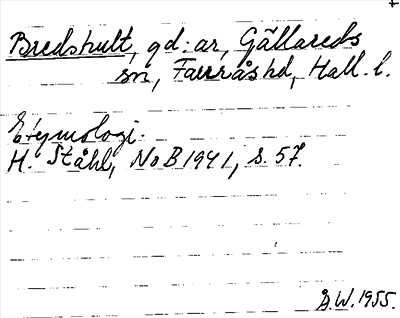 Bredshult, gd:ar, Gällareds
sn, Fauråshd, Hall. l.
Etymologi:
H. Ståhl, NoB 1941, s. 57.
G.W. 1955.